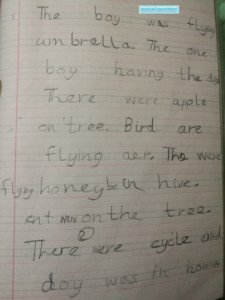 The boy was flying
umbrella. The one
boy having the dog
There were apple
on tree. Bird are
flying aer. The were
flying honeybe in hive.
ant on the tree.
There were cycle and
dog was in home